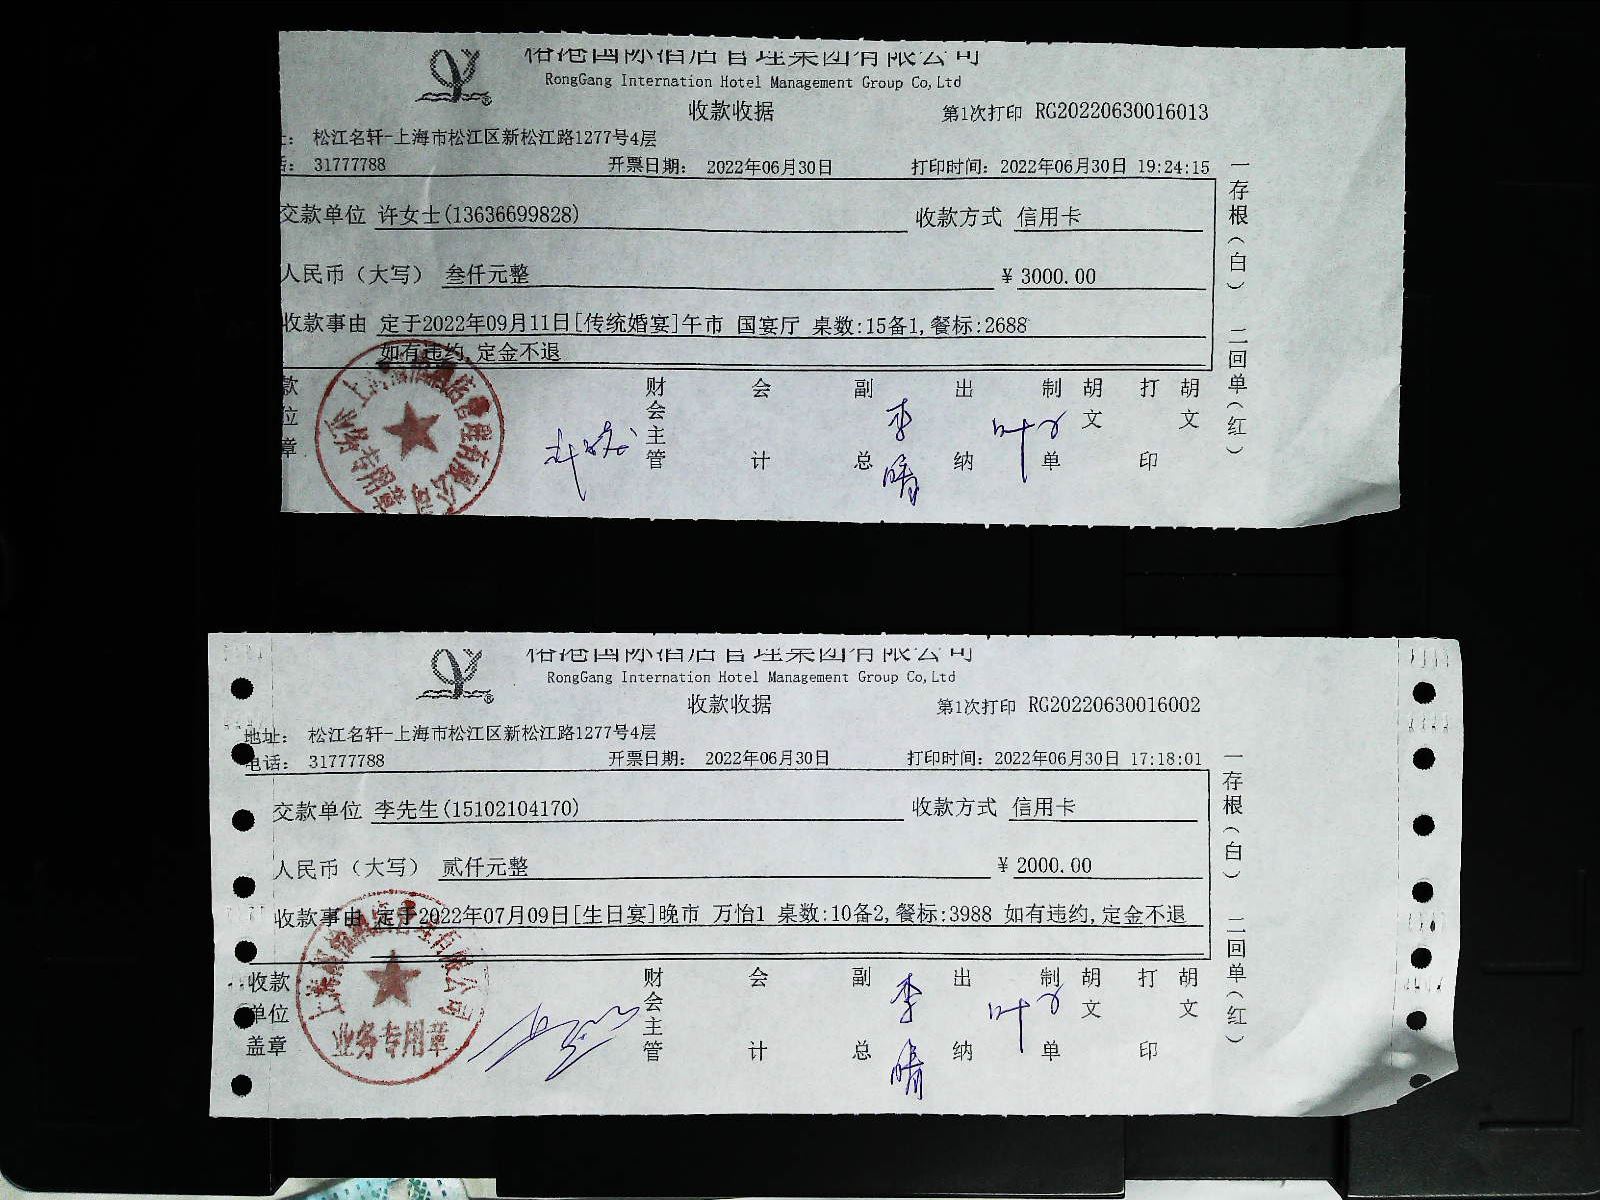 榕港国际酒店管理集团有限公司
RongGang Internation Hotel Management Group Co,Ltd
收款收据 第1次打印 RG20220630016013
址: 松江名轩-上海市松江区新松江路1277号4层
话: 31777788 开票日期: 2022年06月30日 打印时间: 2022年06月30日 19:24:15
交款单位 许女士(13636699828) 收款方式 信用卡
人民币（大写） 叁仟元整 ¥ 3000.00
收款事由 定于2022年09月11日[传统婚宴]午市 国宴厅 桌数:15备1,餐标:2688
如有违约,定金不退
款位章 财会主管 会计 副总 李晴 出纳 叶 制单 胡文 打印 胡文
业务专用章
一存根（白） 二回单（红）
榕港国际酒店管理集团有限公司
RongGang Internation Hotel Management Group Co,Ltd
收款收据 第1次打印 RG20220630016002
地址: 松江名轩-上海市松江区新松江路1277号4层
电话: 31777788 开票日期: 2022年06月30日 打印时间: 2022年06月30日 17:18:01
交款单位 李先生(15102104170) 收款方式 信用卡
人民币（大写） 贰仟元整 ¥ 2000.00
收款事由 定于2022年07月09日[生日宴]晚市 万怡1 桌数:10备2,餐标:3988 如有违约,定金不退
收款单位盖章 财会主管 会计 副总 李晴 出纳 叶 制单 胡文 打印 胡文
业务专用章
一存根（白） 二回单（红）